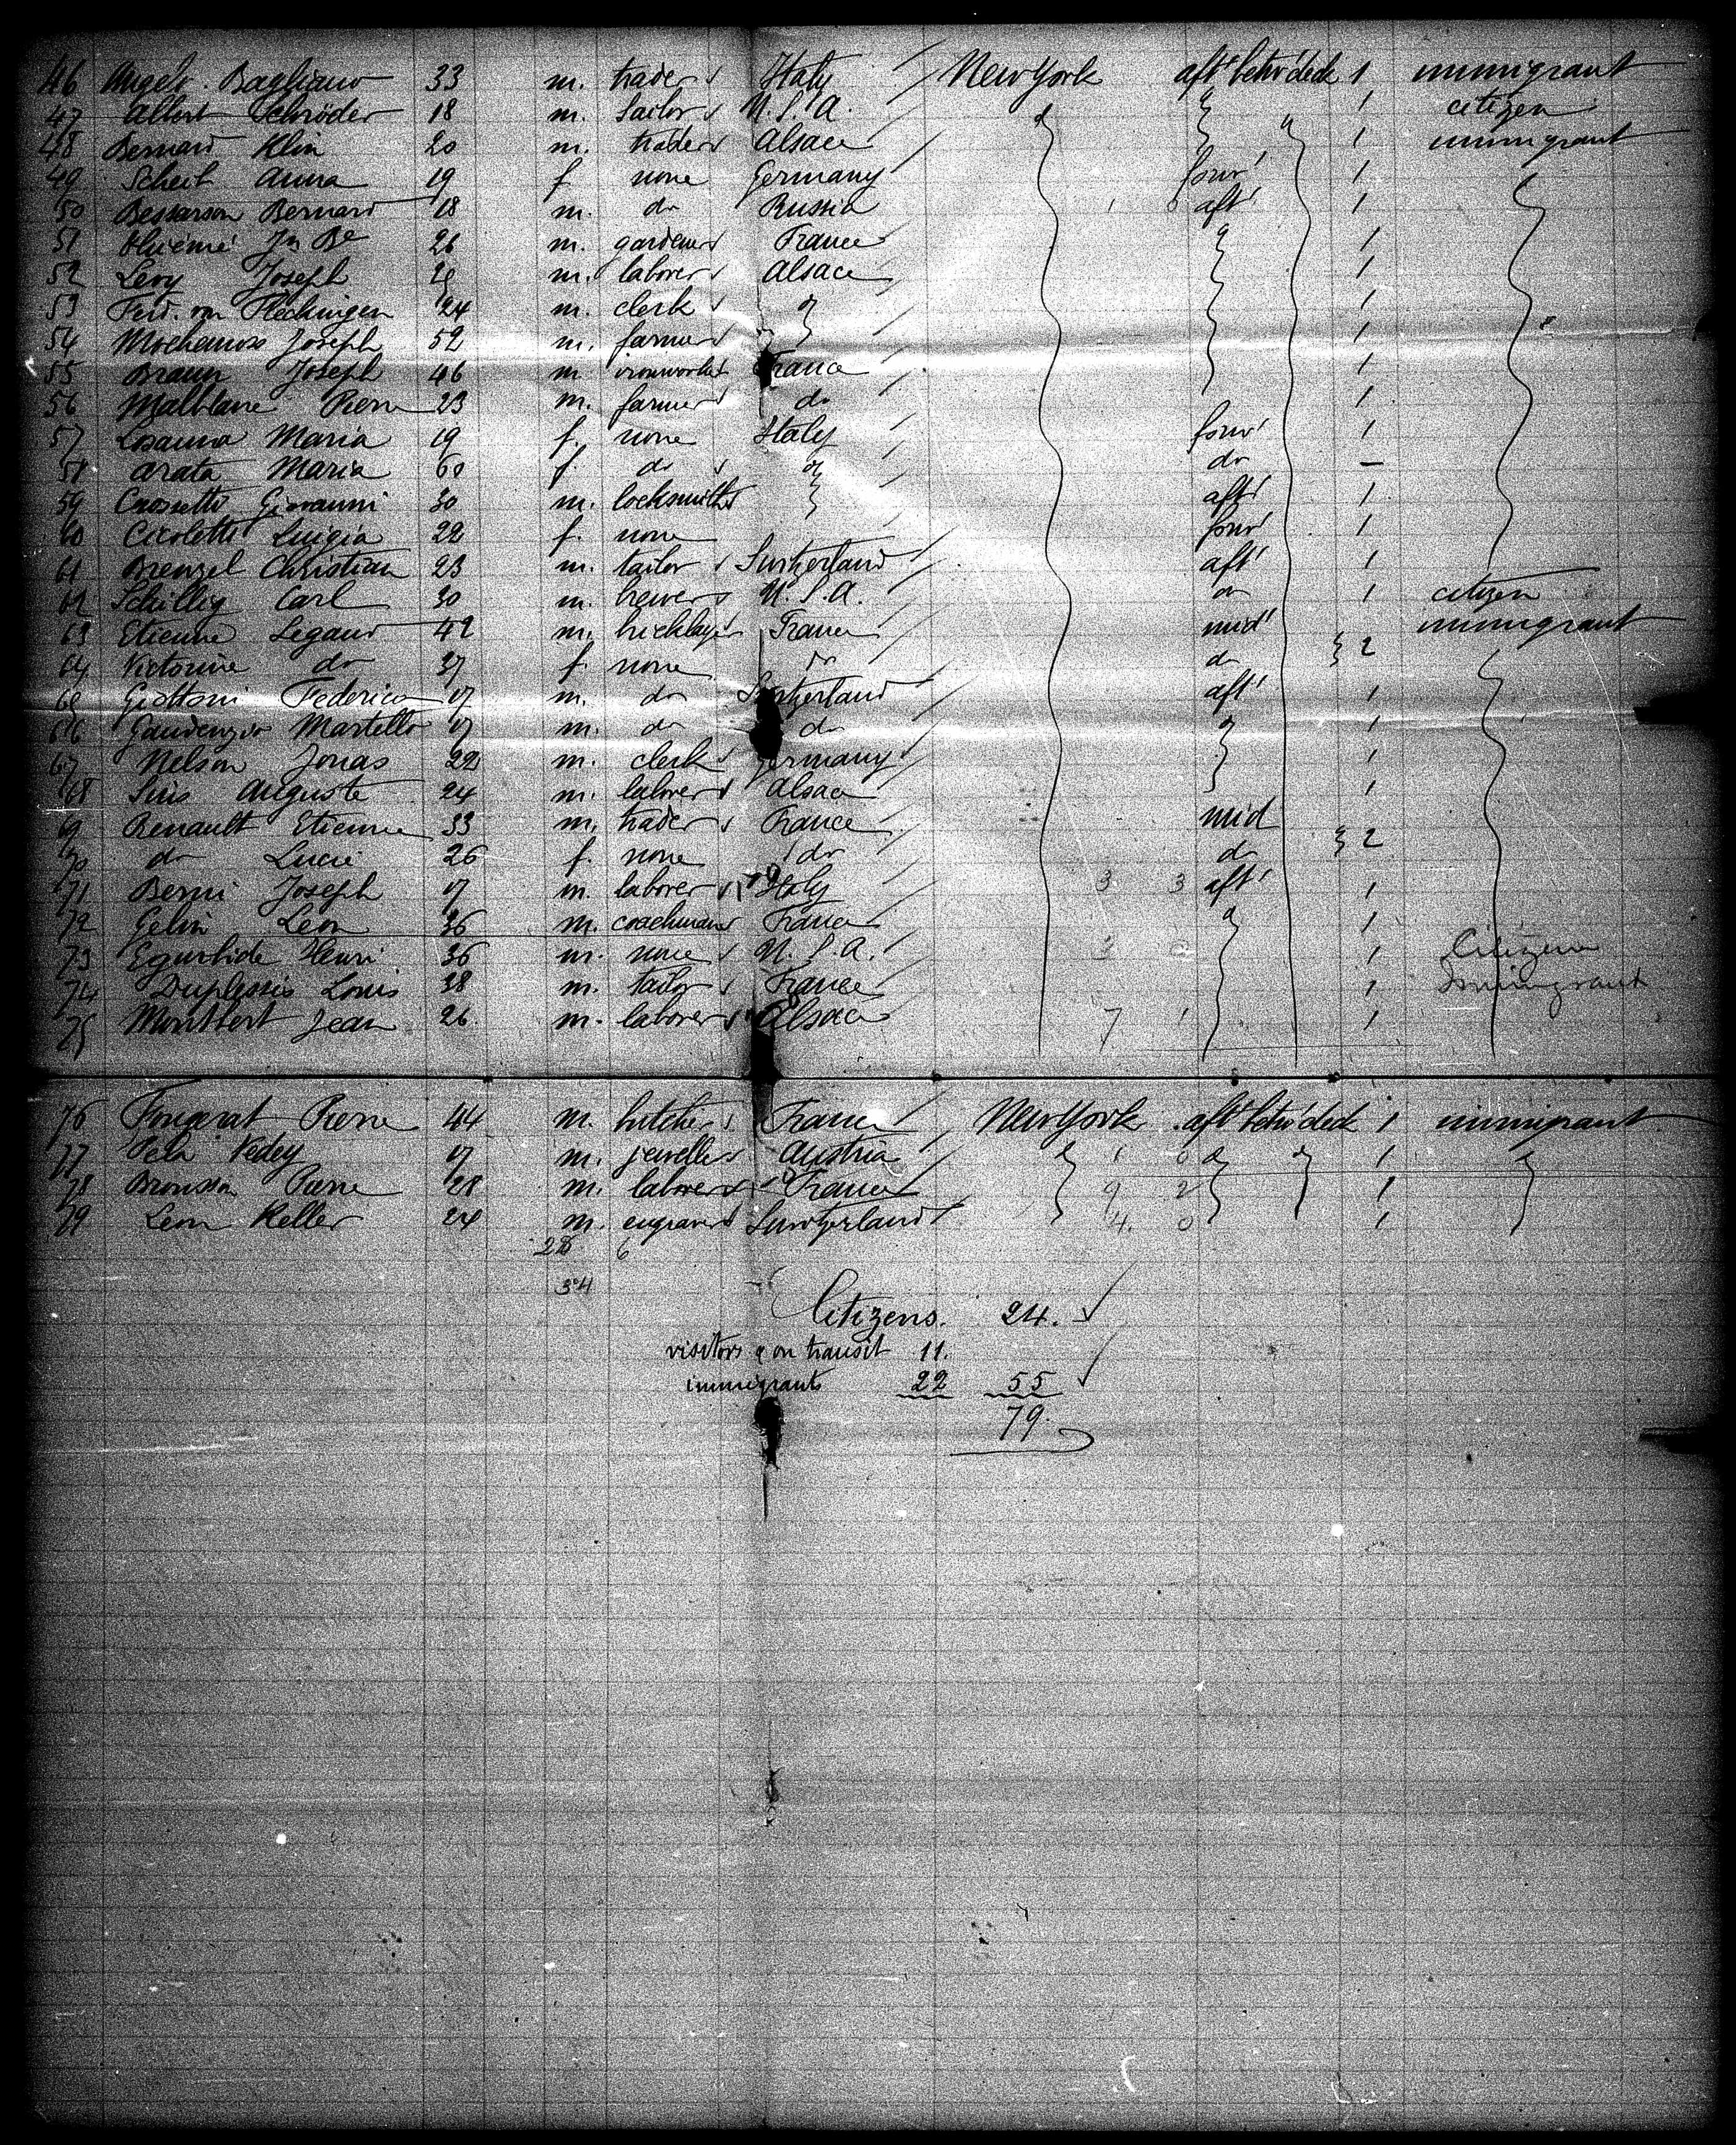 46 Angelo Bagliano 33 m. trader Italy New York aft betw' deck 1 immigrant
47 Albert Schröder 18 m. sailor U.S.A. 1 citizen
48 Bernard Klin 20 m. trader Alsace 1 immigrant
49 Scheib Anna 19 f none Germany forw' 1
50 Bessarson Bernard 18 m. do Russia aft' 1
51 26 m. gardener France 1
52 Levy Joseph m. laborer Alsace 1
53 Ferd. von Flechingen 24 m. clerk 1
54 Joseph 52 m. farmer 1
55 Braun Joseph 46 m ironworker France 1
56 Malblanc Pierre 23 m. farmer do 1
57 Losanna Maria 19 f. none Italy forw' 1
58 Arata Maria 60 f. do do —
59 Crossetto Giovanni 30 m. locksmith aft' 1
60 Cicoletti Luigia 22 f. none forw' 1
61 Brenzel Christian 23 m. tailor Switzerland aft' 1
62 Schillig Carl 30 m. brewer U.S.A. do 1 citizen
63 Etienne Legaud 42 m. bricklayer France mid' 2 immigrant
64 Victorine do 37 f. none do do
65 Federico 17 m. do Switzerland aft' 1
66 Gaudenzio Martello 17 m. do do 1
67 Nelson Jonas 22 m. clerk Germany 1
68 Auguste 24 m. laborer Alsace 1
69 Renault Etienne 33 m. trader France mid 2
70 do Lucie 26 f. none do do
71 Berni Joseph 17 m. laborer Italy 3 3 aft' 1
72 Gelin Leon 36 m. coachman France 1
73 Henri 36 m. none U.S.A. 3 1 Citizen
74 Duplessis Louis 38 m. tailor France 1 Immigrant
75 Montbert Jean 26 m. laborer Alsace 7 1 1
76 Fougerat Pierre 44 m. butcher France New York aft betw' deck 1 immigrant
77 Vedey 17 m. jeweller Austria 1 0 1
78 Brousson Pierre 28 m. laborer France 9 2 1
79 Leon Keller 24 m. engraver Switzerland 4. 0 1
28 6
34
Citizens. 24.
visitors & on transit 11.
immigrants 22 55
79.